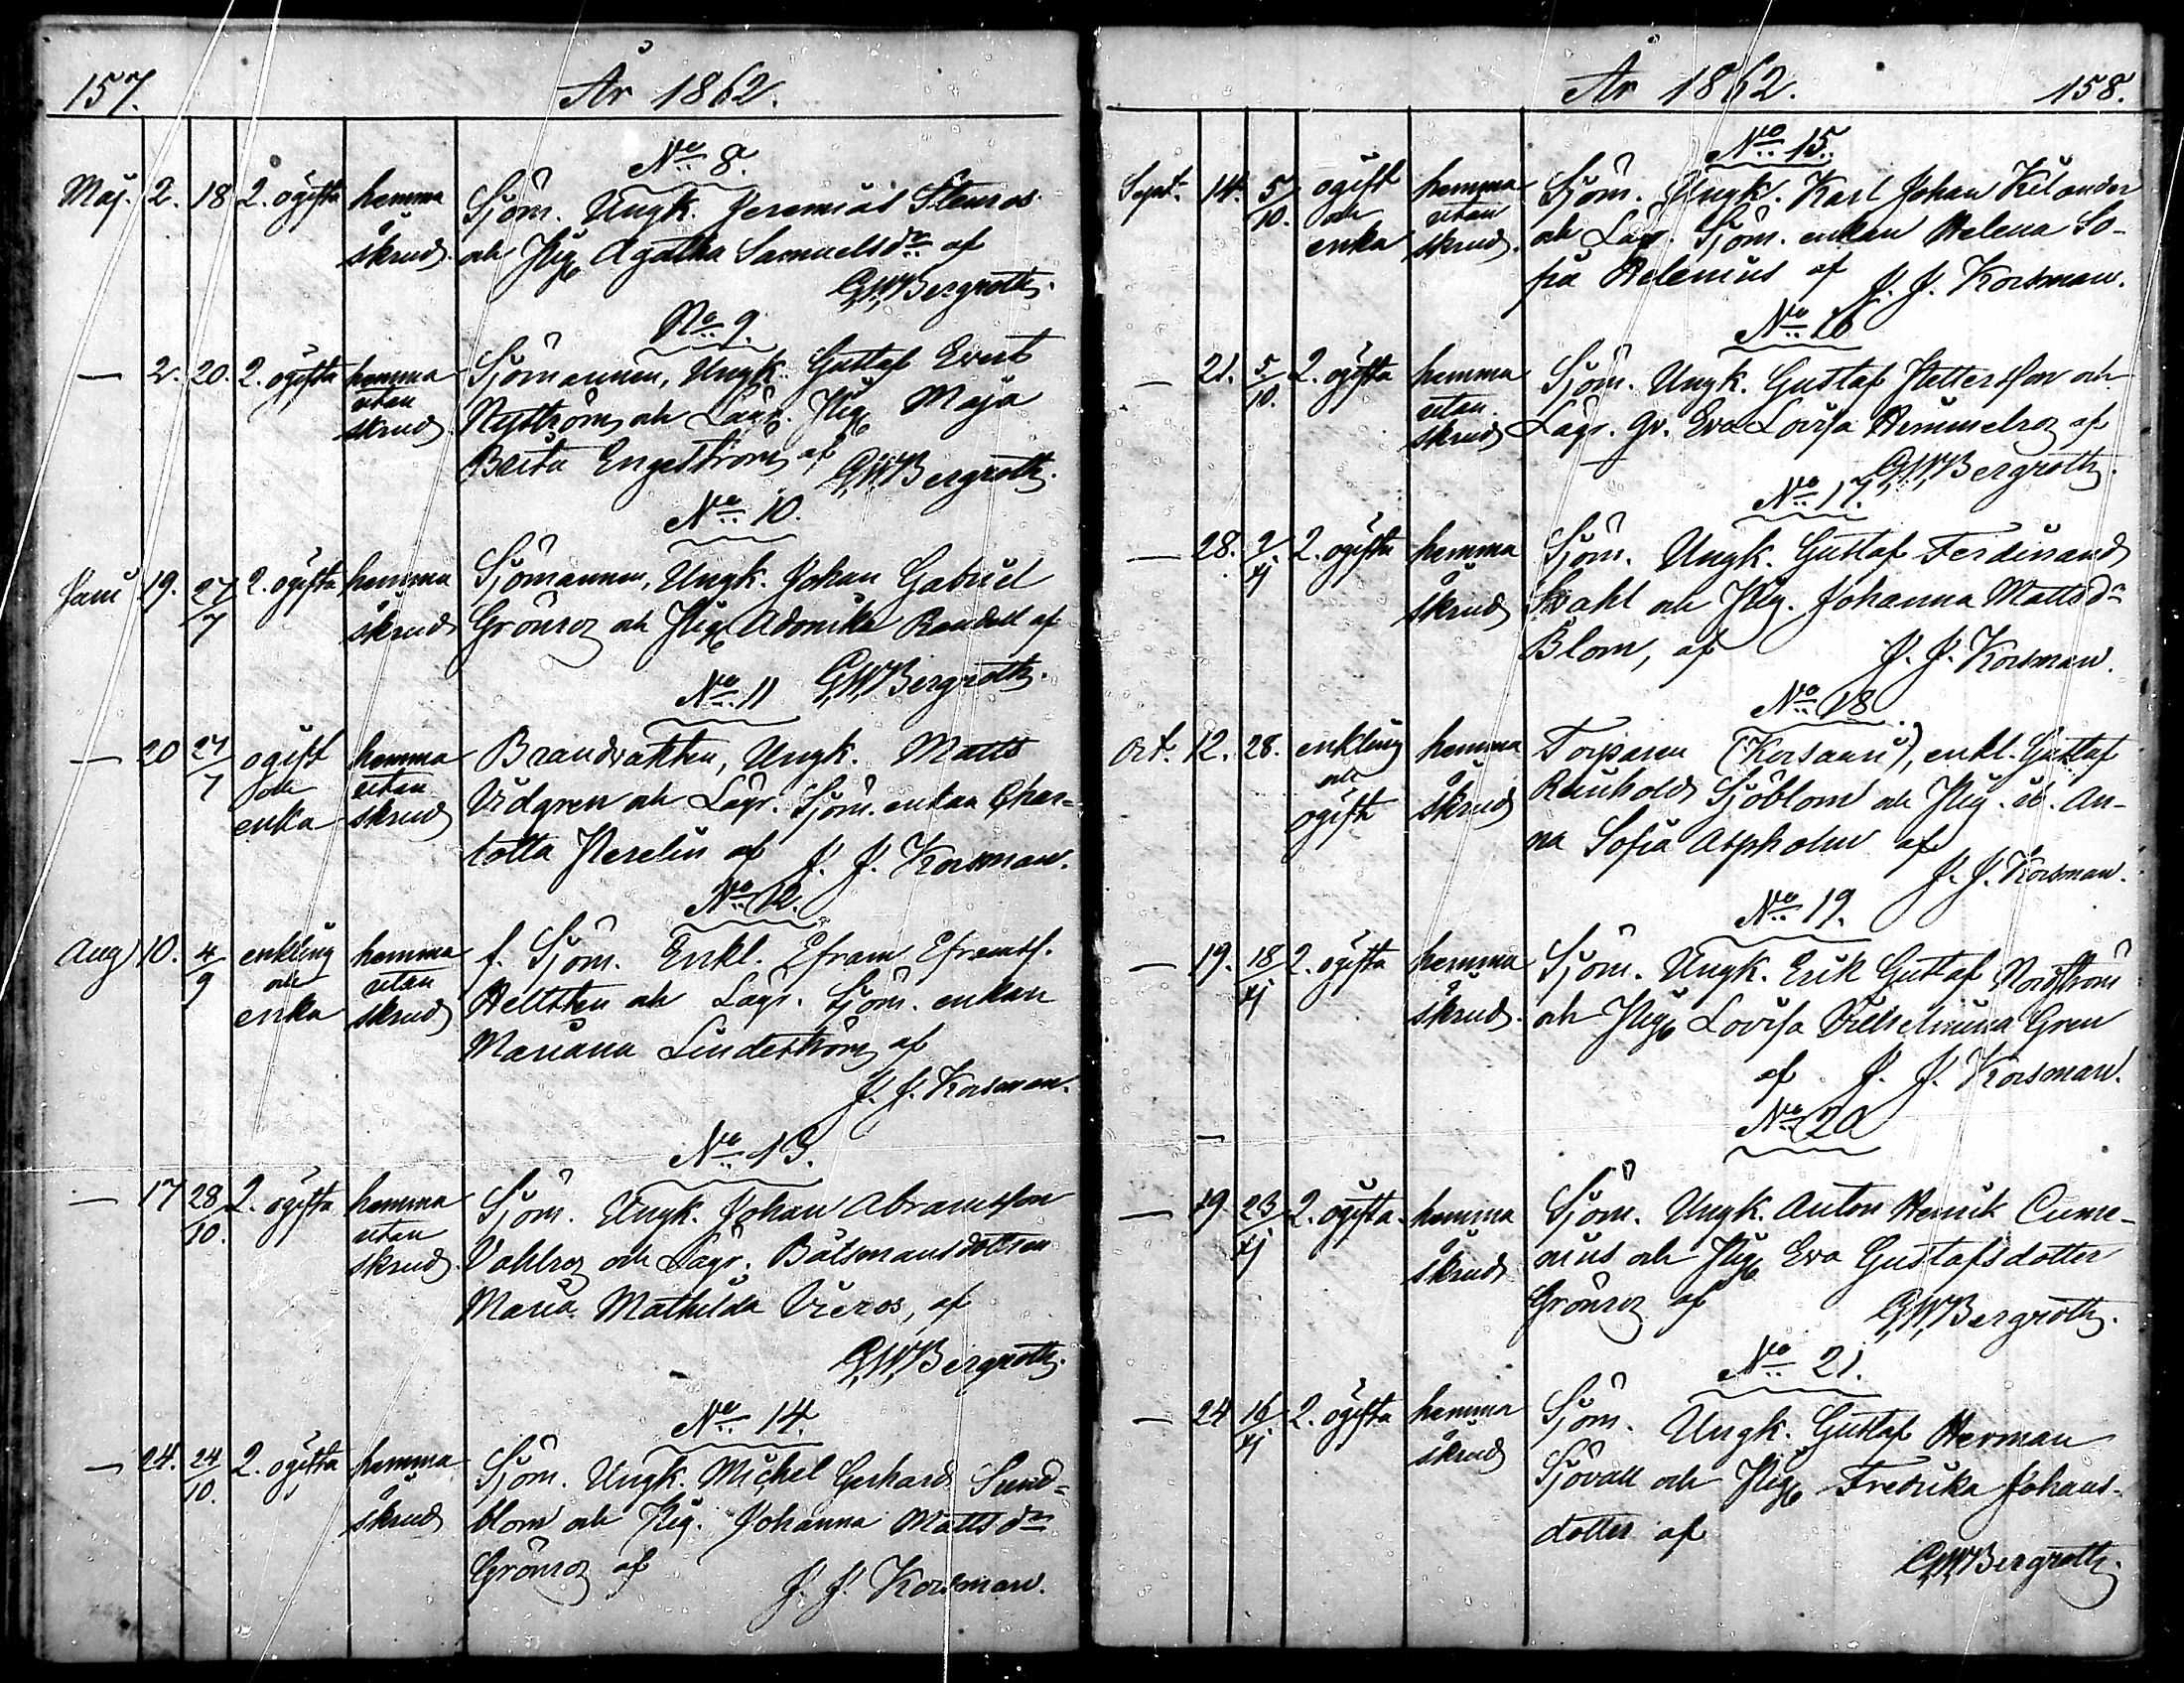 157.
År 1862.
No 8.
Maj. 2. 18 2. ogifta hemma Sjöm. Ungk. Jeremias Stenros
i skrud. och Pig. Agatha Samuelsdr af
GWBergroth.
No 9.
— 2. 20. 2. ogifta hemma Sjömannen, Ungk. Gustaf Evert
utan skrud Nyström och Lägr. Pig. Maja
Brita Engeström af GWBergroth.
No 10.
Juni 19. 27/7 2. ogifta hemma Sjömannen, Ungk. Johan Gabriel
i skrud Grönroz och Pig. Adonika Randell af
GWBergroth.
No 11
— 20 27/7 ogift hemma Brandvakten, Ungk. Matts
och utan Vidgren och Lägr. Sjöm. enkan Char-
enka skrud lotta Perelin af J. J. Korsman.
No 12.
Aug 10. 4/9 enkling hemma f. Sjöm. Enkl. Efraim Efraimss.
och utan Hellsten och Lägr. Sjöm. enkan
enka skrud Mariana Lindeström af
J. J. Korsman.
No 13.
— 17 28/10. 2. ogifta hemma Sjöm. Ungk. Johan Abramsson
utan Vahlroz och Lägr. Båtsmansdottren
skrud. Maria Mathilda Vieros, af
GWBergroth.
No 14.
— 24. 24/10. 2. ogifta hemma Sjöm. Ungk. Michel Gerhard Sund-
i skrud blom och Pig. Johanna Mattsdr
Grönroz af J. J. Korsman.
År 1862.
158.
No 15.
Sept. 14. 5/10. ogift hemma Sjöm. Ungk. Karl Johan Kilander
och utan och Lägr. Sjöm. enkan Helena So-
enka skrud. fia Helenius af J. J. Korsman.
No 16
— 21. 5/10. 2. ogifta hemma Sjöm. Ungk. Gustaf Pettersson och
utan skrud Lägr. qv. Eva Lovisa Himmelroz af
GWBergroth.
No 17.
— 28. 2/xj 2. ogifta hemma Sjöm. Ungk. Gustaf Ferdinand
i skrud Stahl och Pig. Johanna Mattsdr
Blom, af J. J. Korsman.
No 18
Oct. 12. 28. enkling hemma Torparen (Korsaari), enkl. Gustaf
och i skrud Reinhold Sjöblom och Pig. An-
ogift na Sofia Aspholm af
J. J. Korsman.
No 19.
— 19. 18/xj 2. ogifta hemma Sjöm. Ungk. Erik Gustaf Nordström
i skrud. och Pig. Lovisa Vilhelmina Gren
af J. J. Korsman.
No 20
—
— 19 23/xj 2. ogifta hemma Sjöm. Ungk. Anton Henrik Cume-
i skrud nius och Pig. Eva Gustafsdotter
Grönroz af GWBergroth.
No 21.
— 24 16/xj 2. ogifta hemma Sjöm. Ungk. Gustaf Herman
i skrud Sjövall och Pig. Fredrika Johans-
dotter af
GWBergroth.